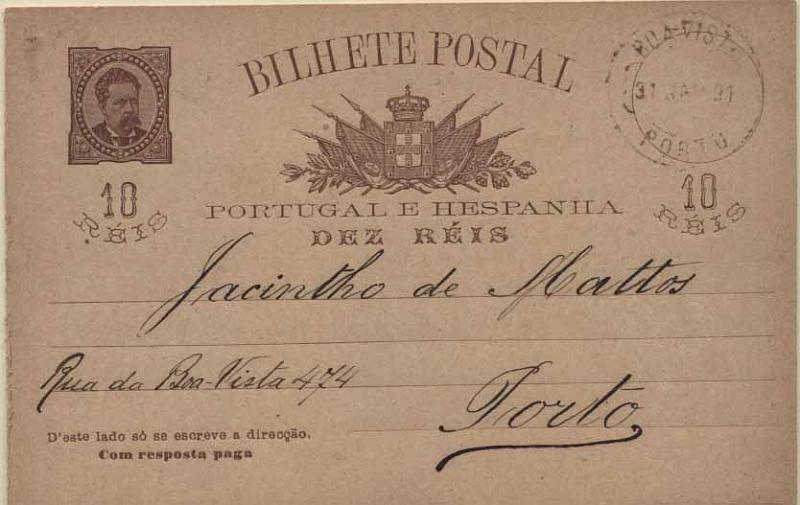 BILHETE POSTAL
BOAVISTA
31 JAN 91
PORTO
10
RÉIS
10
RÉIS
PORTUGAL E HESPANHA
DEZ RÉIS
Jacintho de Mattos
Rua da Boa-Vista 474
Porto
D'este lado só se escreve a direcção.
Com resposta paga